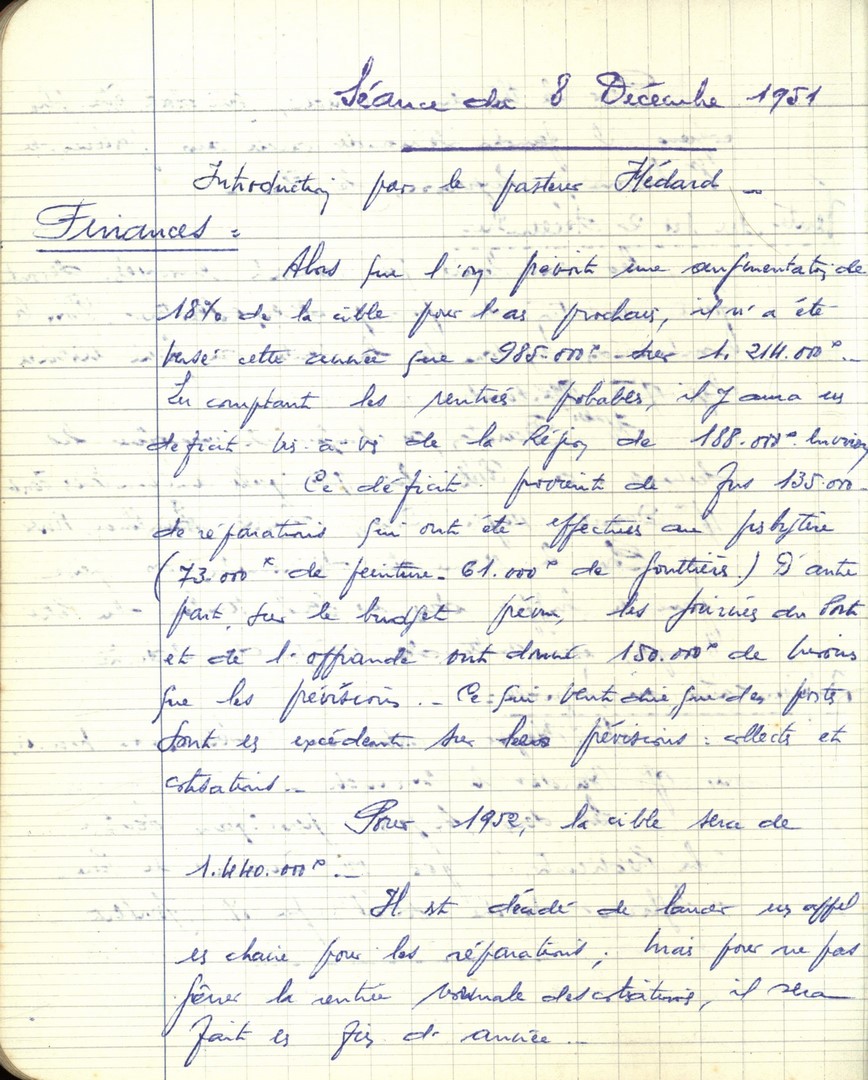 Séance du 8 Décembre 1951
Introduction par le pasteur Médard _
Finances =
Alors que l'on prévoit une augmentation de
18% de la cible pour l'an prochain, il n'a été
versé cette année que 985.000F sur 1.214.000F _
En comptant les rentrées probables, il y aura un
déficit vis-à-vis de la Région de 188.000F environ
Ce déficit provient de Frs 135.000
de réparations qui ont été effectuées au presbytère
(73.000F de peinture _ 61.000F de gouttières.) D'autre
part, sur le budget prévu, les journées du Port
et de l'offrande ont donné 150.000F de moins
que les prévisions. _ Ce qui veut dire, que des postes
sont en excédent sur leurs prévisions : collectes et
cotisations _
Pour 1952, la cible sera de
1.440.000F _
Il est décidé de lancer un appel
en chaire pour les réparations ; mais pour ne pas
gêner la rentrée normale des cotisations, il sera
fait en fin d'année _